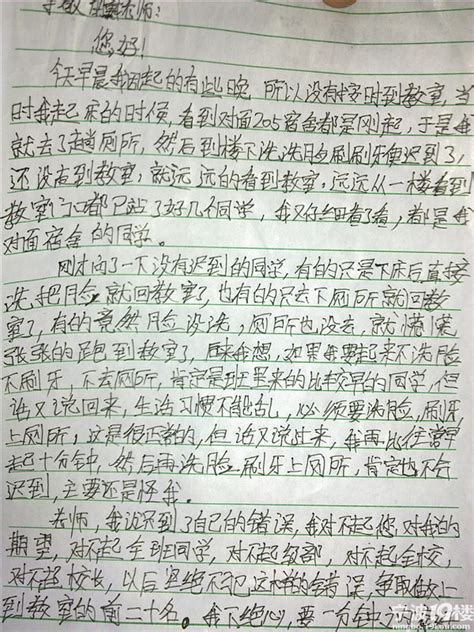 老师:
您好!
今天早晨我因起的有些晚,所以没有按时到教室,当
时我起床的时候,看到对面205宿舍都是刚起,于是我
就去了趟厕所,然后到楼下洗洗脸刷刷牙便迟到了,
还没走到教室,就远远的看到教室,远远从一楼看到
教室门口都已站了好几个同学,我又仔细看了看,都是我
对面宿舍的同学。
刚才问了一下没有迟到的同学,有的只是下床后直接
洗把脸就回教室了,也有的只去下厕所就回教
室了,有的竟然脸没洗,厕所也没去,就慌慌
张张的跑到教室了,后来我想,如果我要起来不洗脸
不刷牙,不去厕所,肯定是班里来的比较早的同学,但
话又说回来,生活习惯不能乱,必须要洗脸,刷牙
上厕所,这是很正常的,但话又说过来,我再比往常早
起十分钟,然后再洗脸刷牙上厕所,肯定也不会
迟到,主要还是怪我。
老师,我认识到了自己的错误,我对不起您对我的
期望,对不起全班同学,对不起级部,对不起全校,
对不起校长,以后坚绝不犯这样的错误,争取做
到教室的前二十名。我下绝心,要一分钟
宁波19楼